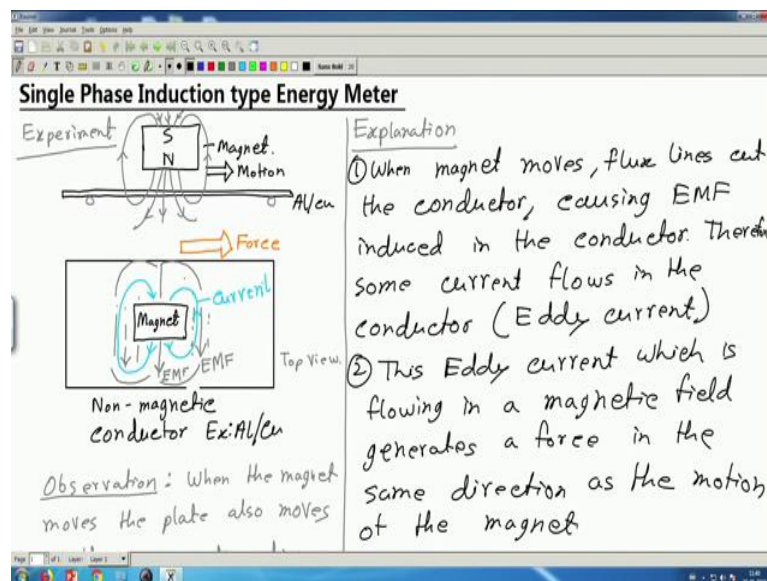 File Edit View Journal Tools Options Help
Single Phase Induction type Energy Meter
Experiment
S
N
Magnet.
Motion
Al/cu
Force
current
Magnet
EMF EMF
Top View.
Non-magnetic
conductor Ex:Al/Cu
Observation: When the magnet
moves the plate also moves
Explanation
① When magnet moves, flux lines cut
the conductor, causing EMF
induced in the conductor. Therefo
some current flows in the
conductor (Eddy current)
② This Eddy current which is
flowing in a magnetic field
generates a force in the
same direction as the motion
of the magnet
Page 1 of 1 Layer: Layer 1